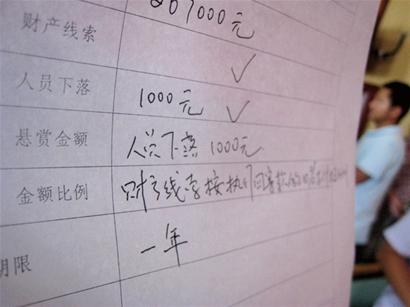 267000元
财产线索 ✓
人员下落 1000元 ✓
悬赏金额 人员下落1000元
金额比例 财产线索按执行回案款
期限 一年